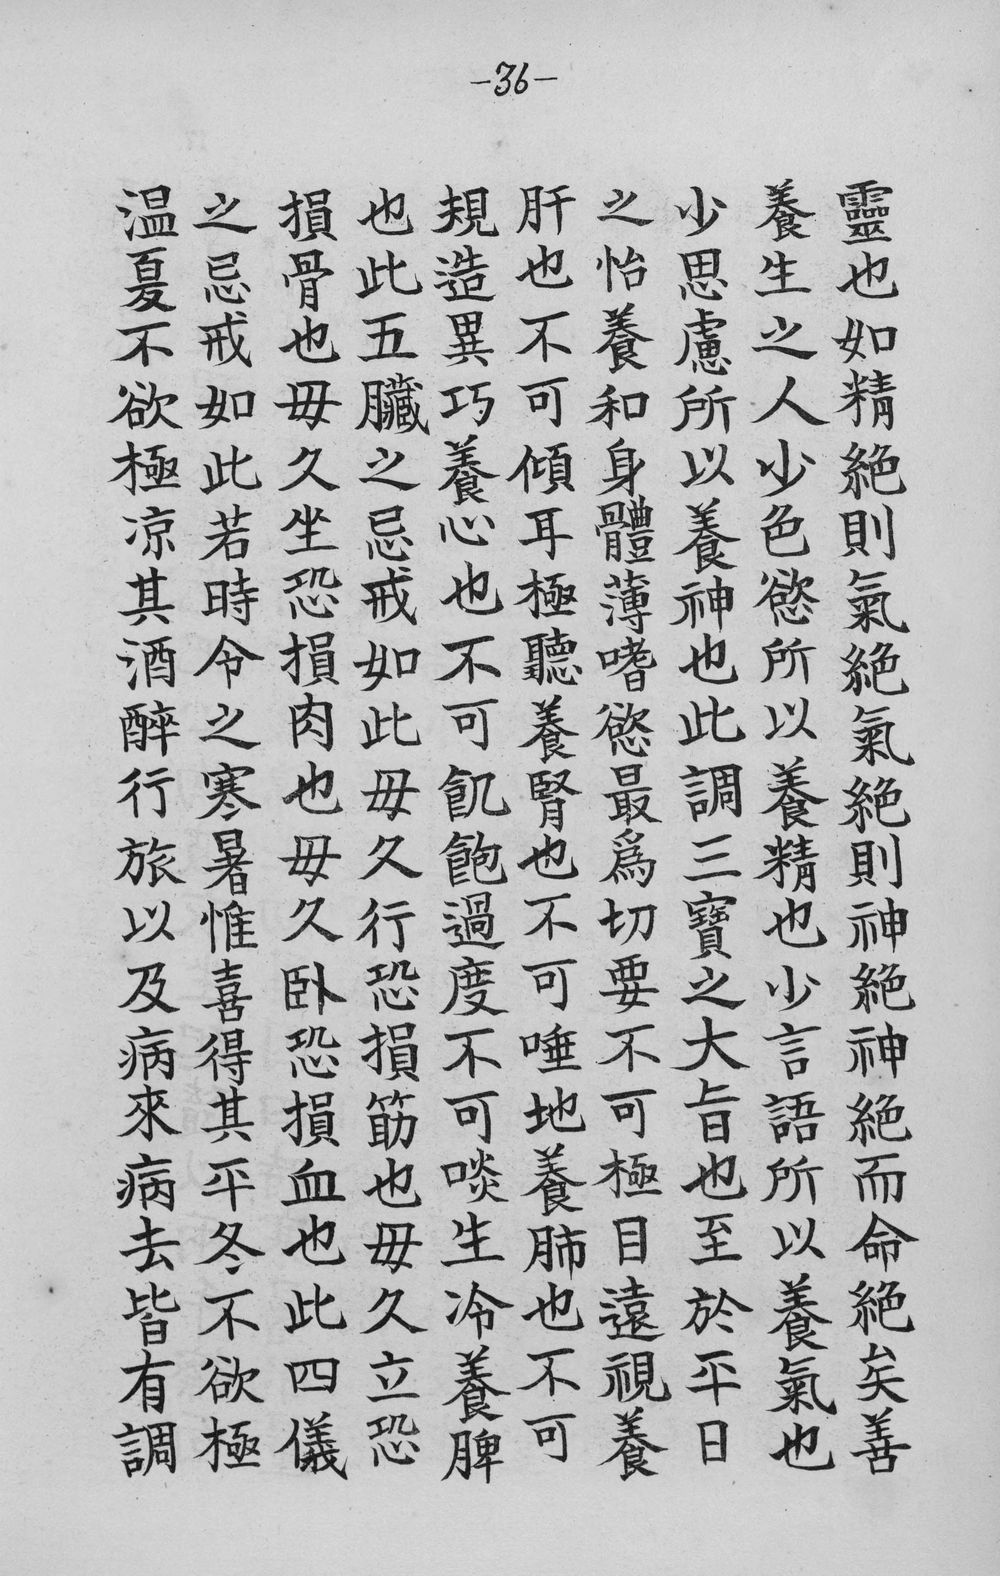 -36-
靈也如精絕則氣絕氣絕則神絕神絕而命絕矣善
養生之人少色慾所以養精也少言語所以養氣也
少思慮所以養神也此調三寶之大旨也至於平日
之怡養和身體薄嗜慾最爲切要不可極目遠視養
肝也不可傾耳極聽養腎也不可唾地養肺也不可
規造異巧養心也不可飢飽過度不可啖生冷養脾
也此五臟之忌戒如此毋久行恐損筋也毋久立恐
損骨也毋久坐恐損肉也毋久卧恐損血也此四儀
之忌戒如此若時令之寒暑惟喜得其平冬不欲極
温夏不欲極凉其酒醉行旅以及病來病去皆有調